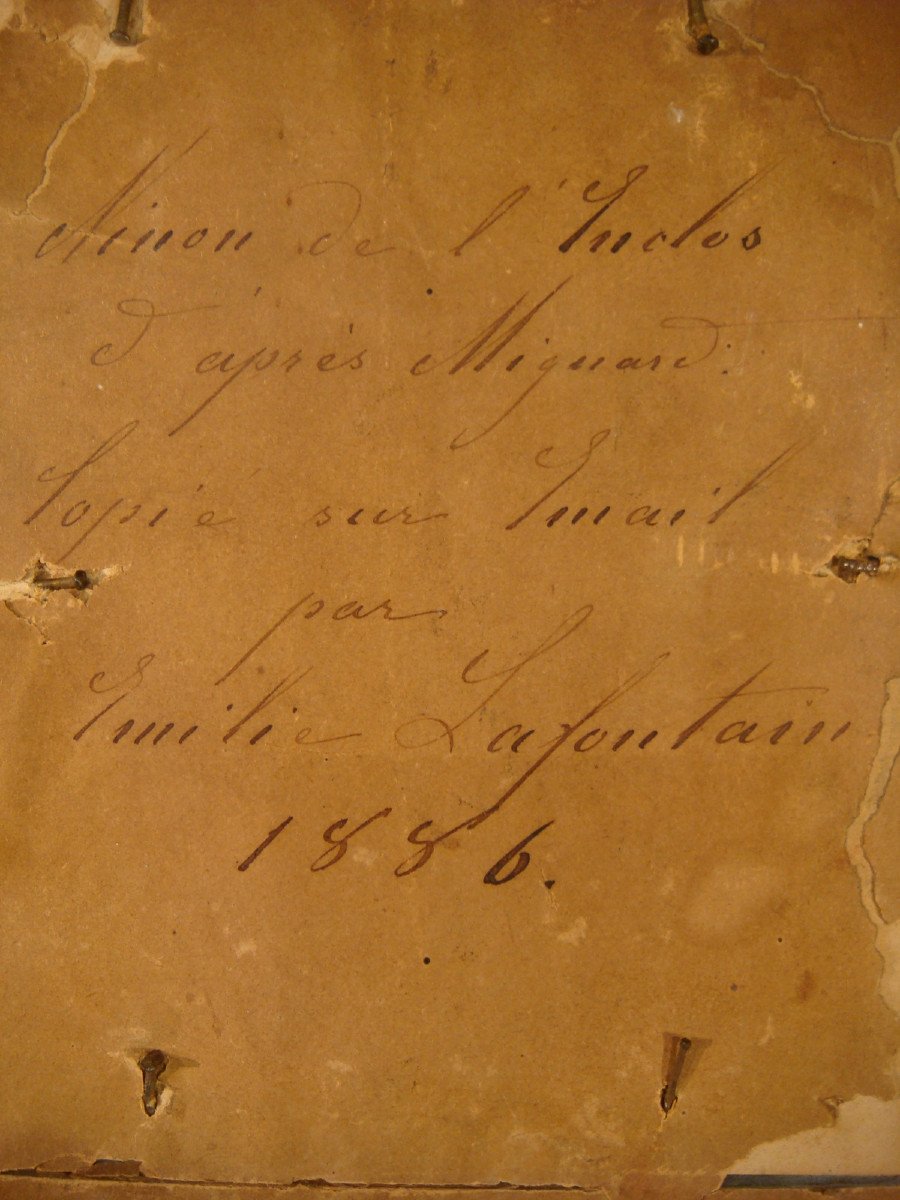 Ninon de l'Enclos
d'après Mignard.
Copié sur Email
par
Emilie Lafontain
1886.